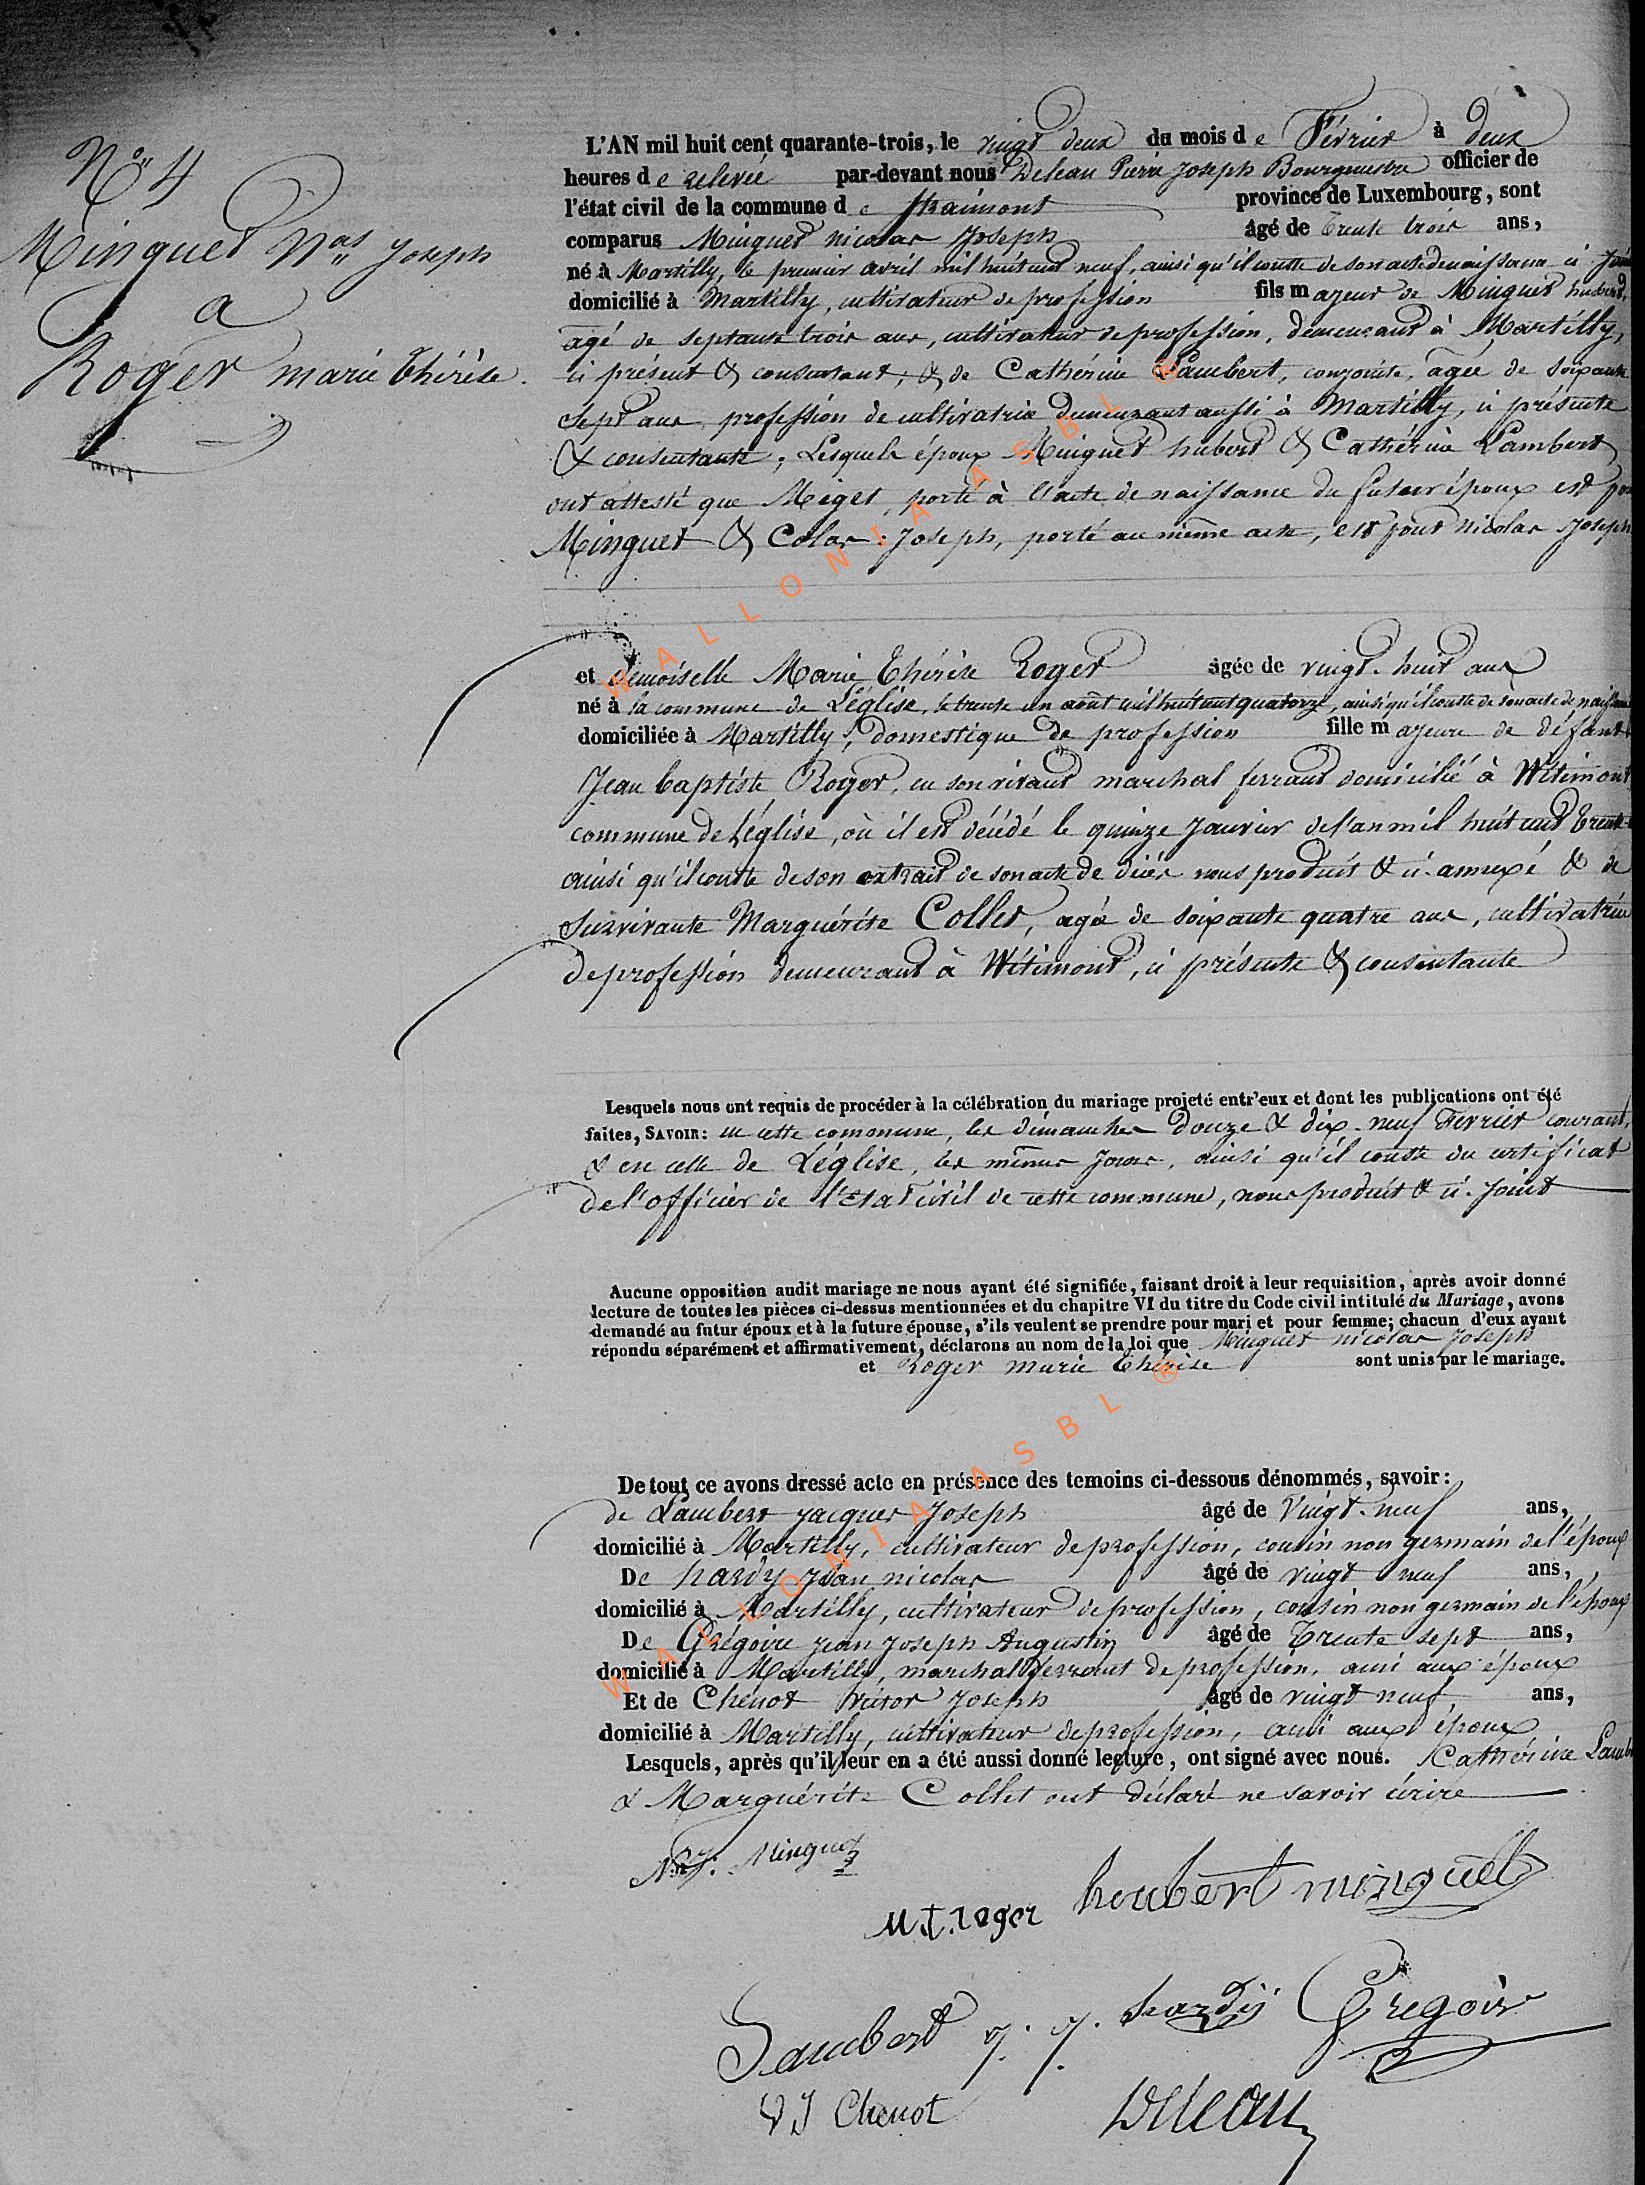 N° 4
Minguet Nas Joseph
a
Roger marie thérèse.
L'AN mil huit cent quarante-trois, le vingt deux du mois de Février à deux
heures de relevée par-devant nous Deleau Pierre Joseph Bourguestre officier de
l'état civil de la commune de Straimont province de Luxembourg, sont
comparus Minguet nicolas Joseph âgé de trente trois ans,
né à Martilly, le premier avril mil huit cent neuf, ainsi qu'il conste de son acte de naissance ci
domicilié à Martilly, cultivateur de profession fils mageur de Minguet hubert,
agé de septante trois ans, cultivateur de profession, demeurant à Martilly,
ci présent & consentant; & de Cathérine Lambert, conjointe, agée de soixante
sept ans, profession de cultivatrice demeurant aussi à Martilly, ci présente
& consentante; Lesquels époux Minguet hubert & Cathérine Lambert
ont attesté que Miget, porté à l'acte de naissance du futur époux est pour
Minguet & Colas-Joseph, porté au même acte, est pour nicolas Joseph
et demoiselle Marie Thérèse Roger âgée de vingt-huit ans
né à la commune de Léglise, le trente un août mil huit cent quatorze, ainsi qu'il conste de son acte de naissance
domiciliée à Martilly, domestique de profession fille mageure de défunt
Jean baptiste Roger, en son vivant marchal ferrant domicilié à Witimont
commune de Léglise, où il est décédé le quinze Janvier de l'an mil huit cent trente
ainsi qu'il conste de son extrait de son acte de décès nous produit & ci-annexé & de
survivante Marguérite Collet, agée de soixante quatre ans, cultivatrice
de profession demeurant à Witimont, ci présente & consentante
Lesquels nous ont requis de procéder à la célébration du mariage projeté entr'eux et dont les publications ont été
faites, SAVOIR: en cette commune, les dimanches douze & dix-neuf Février courant,
& en celle de Léglise, les mêmes jours, ainsi qu'il conste du certificat
de l'officier de l'Etat civil de cette commune, nous produit & ci-joint
Aucune opposition audit mariage ne nous ayant été signifiée, faisant droit à leur requisition, après avoir donné
lecture de toutes les pièces ci-dessus mentionnées et du chapitre VI du titre du Code civil intitulé du Mariage, avons
demandé au futur époux et à la future épouse, s'ils veulent se prendre pour mari et pour femme; chacun d'eux ayant
répondu séparément et affirmativement, déclarons au nom de la loi que Minguet nicolas Joseph
et Roger marie thérèse sont unis par le mariage.
De tout ce avons dressé acte en présence des temoins ci-dessous dénommés, savoir:
de Lambert Jacques Joseph âgé de Vingt-neuf ans,
domicilié à Martilly, cultivateur de profession, cousin non germain de l'époux
De hardy Jean nicolas âgé de vingt neuf ans,
domicilié à Martilly, cultivateur de profession, cousin non germain de l'époux
De Grégoire Jean Joseph Augustin âgé de trente sept ans,
domicilié à Martilly, marchal ferrant de profession, ami aux époux
Et de Chenot Victor Joseph âgé de vingt neuf, ans,
domicilié à Martilly, cultivateur de profession, ami aux époux
Lesquels, après qu'il leur en a été aussi donné lecture, ont signé avec nous. Cathérine Lamb
& Marguérite Collet ont déclaré ne savoir écrire
N. J. Minguet
M t. roger houbert minguet
Lambert J. J. hardÿ Gregoire
V J Chenot Deleau
WALLONIA ASBL ®
WALLONIA ASBL ®